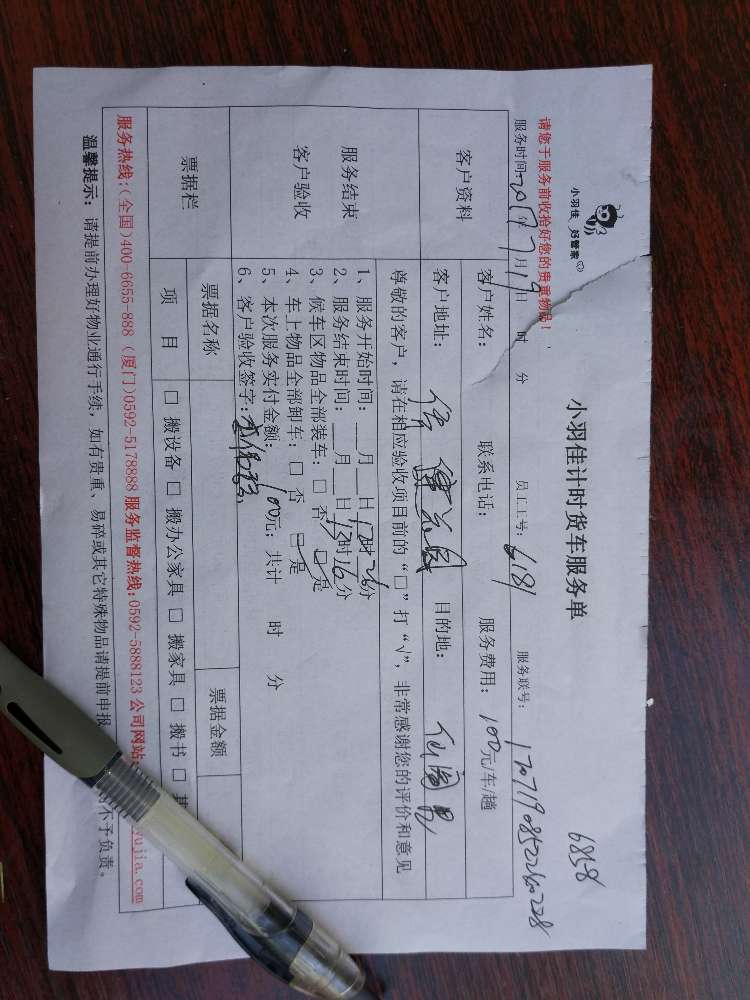 小羽佳 好管家
小羽佳计时货车服务单
6858
请您于服务前收拾好您的贵重物品！
服务时间：2017年7月19日 时 分 员工工号：6181 服务联号：
客户资料 客户姓名： 联系电话： 服务费用：100元/车/趟
客户地址： 目的地：
服务结束
客户验收
尊敬的客户，请在相应验收项目前的“□”打“√”，非常感谢您的评价和意见
1、服务开始时间：__月__日12时26分
2、服务结束时间：__月__日13时16分
3、候车区物品全部装车：□ 否 ☑ 是
4、车上物品全部卸车：□ 否 ☑ 是
5、本次服务实付金额：100元；共计 时 分
6、客户验收签字：
票据栏 票据名称 票据金额
项 目 □ 搬设备 □ 搬办公家具 □ 搬家具 □ 搬书 □
服务热线:(全国)400-6655-888 (厦门)0592-5178888 服务监督热线:0592-5888123 公司网站:
温馨提示：请提前办理好物业通行手续，如有贵重、易碎或其它特殊物品请提前申报 不予负责。